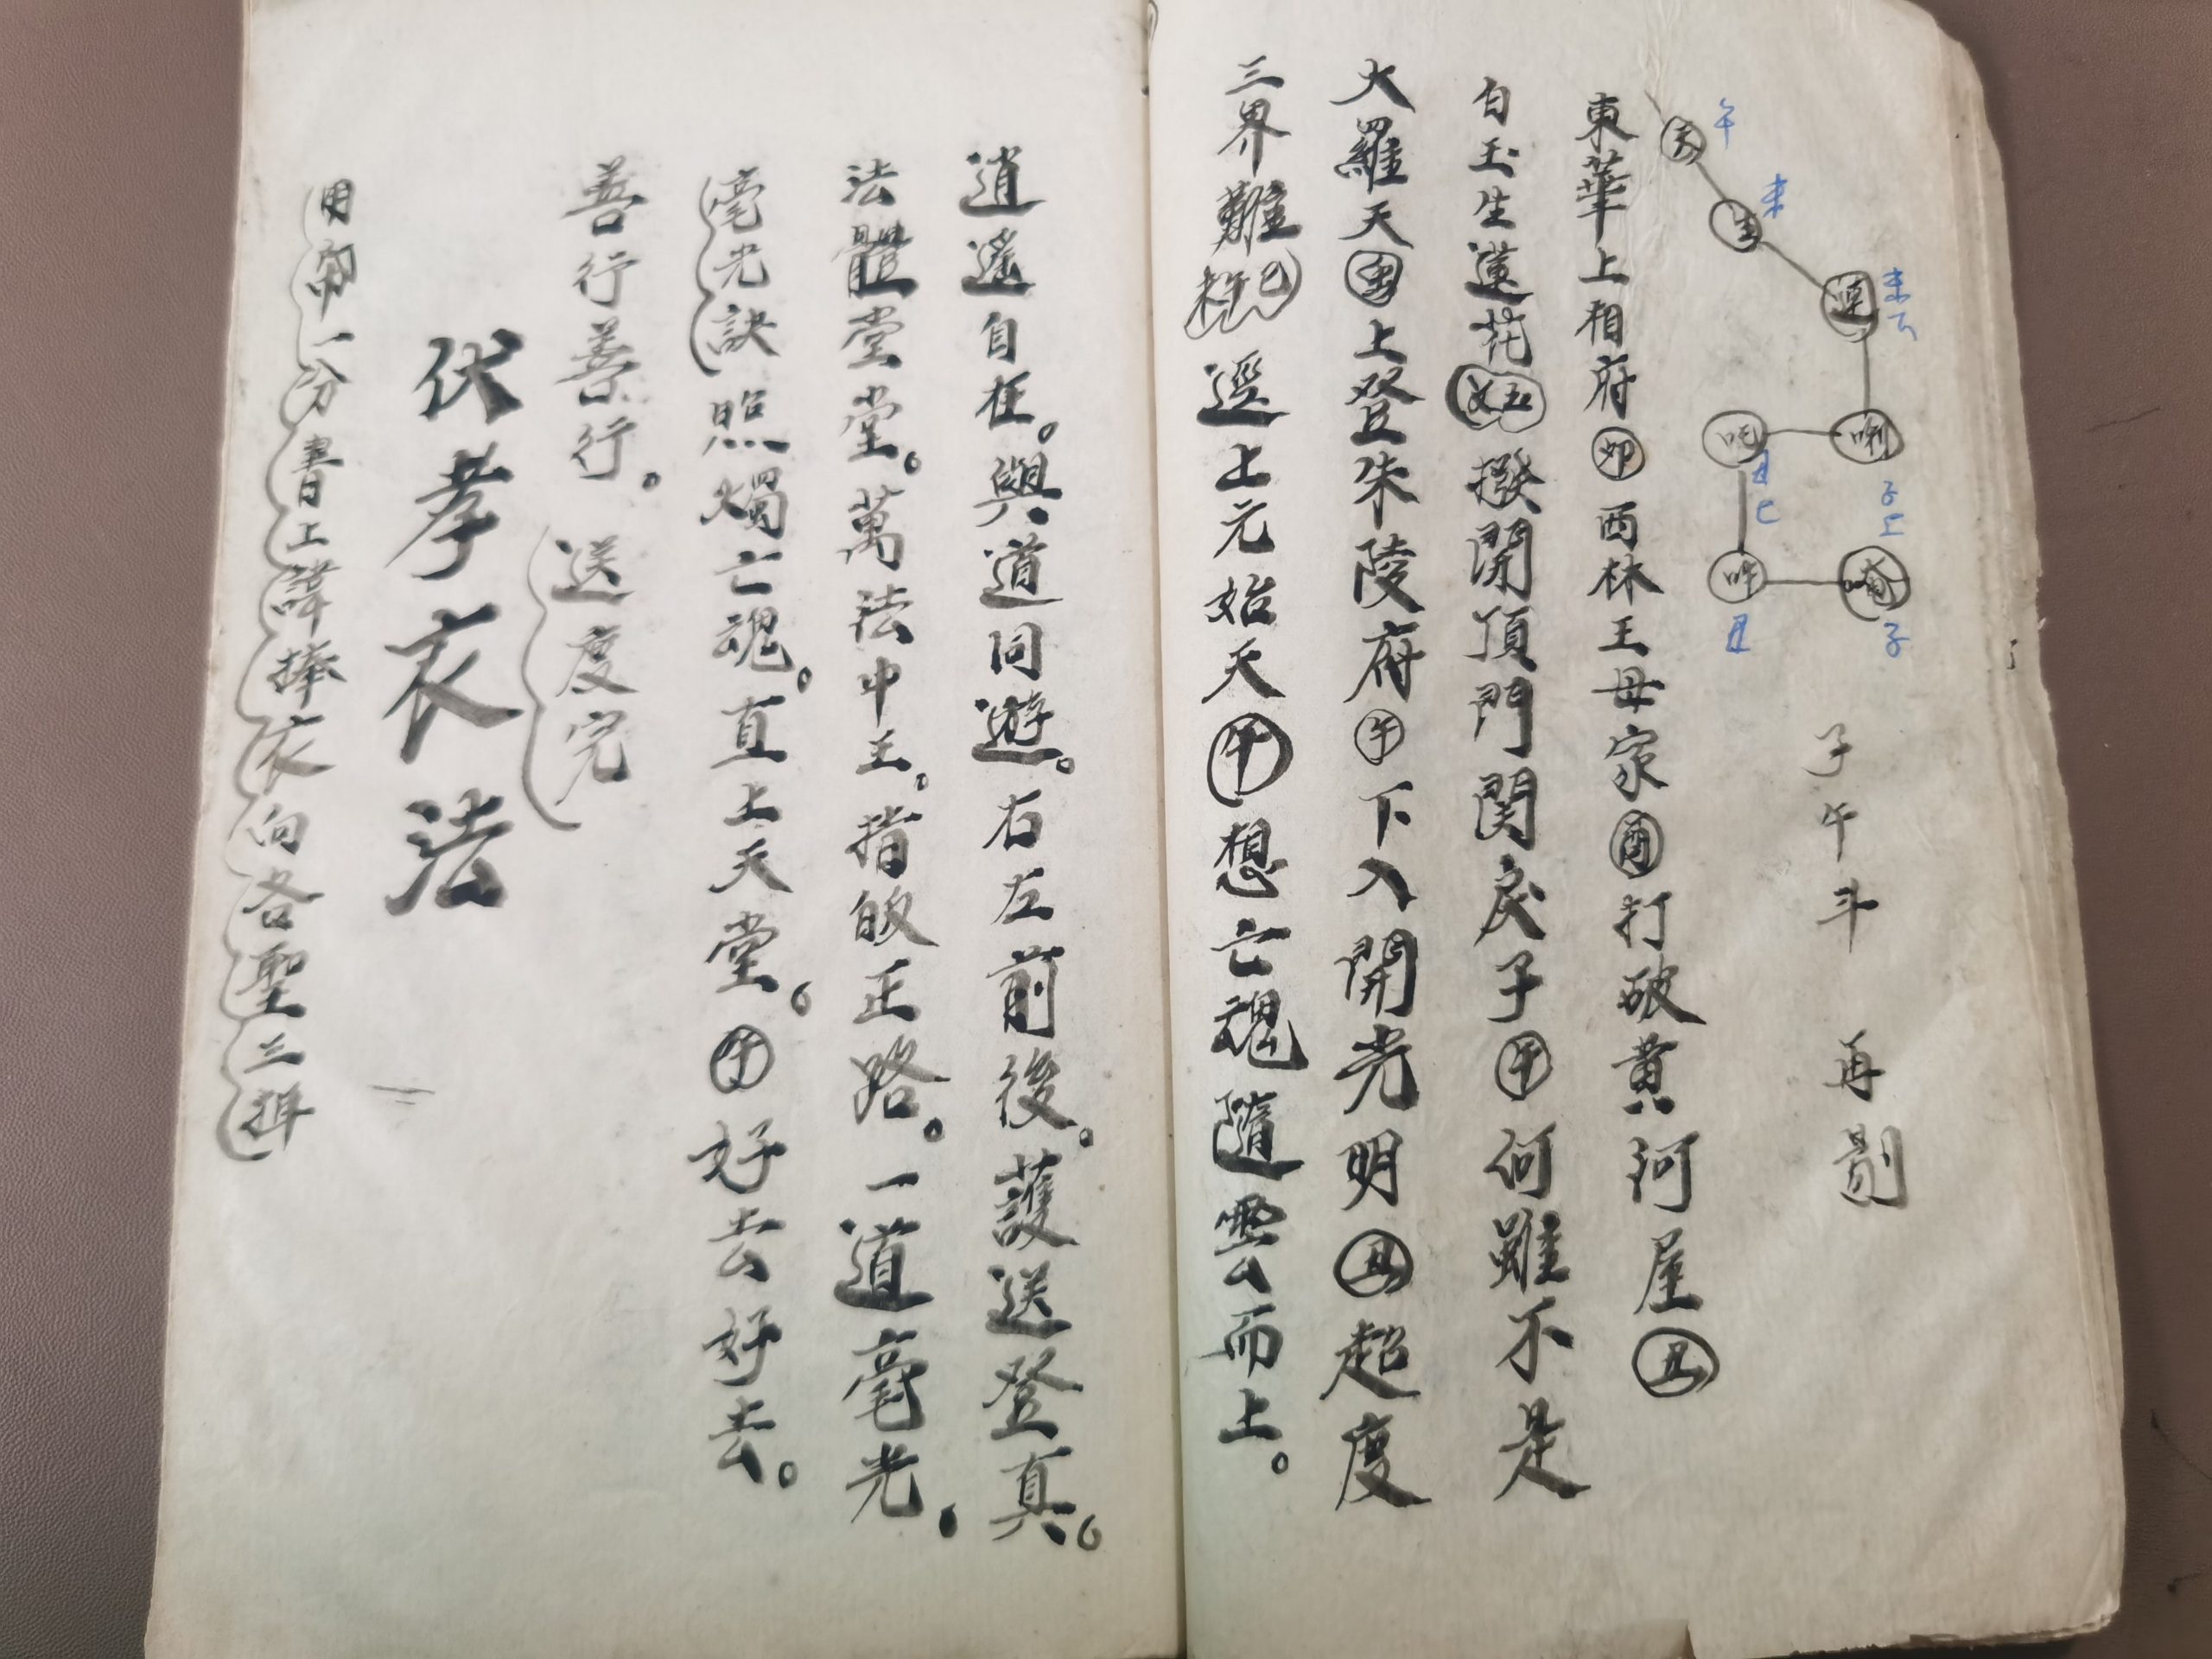 子午斗 再劄
天 午
主 未
連
喇
吒
吽 丑
唵 子
東華上相府卯西林王母家酉打破黄河屋丑
白玉生蓮花撥開頂門関戾子午何雖不是
大羅天上登朱陵府午下入開光明丑超度
三界難巳逕上元始天午想亡魂隨雲而上。
逍遙自在。與道同遊。右左前後。護送登真。
法體堂堂。萬法中王。指皈正路。一道毫光。
毫光訣照燭亡魂。直上天堂。午好去好去。
善行善行。送度完
伏孝衣法
用帛一分書上諱捧衣向各聖三揖